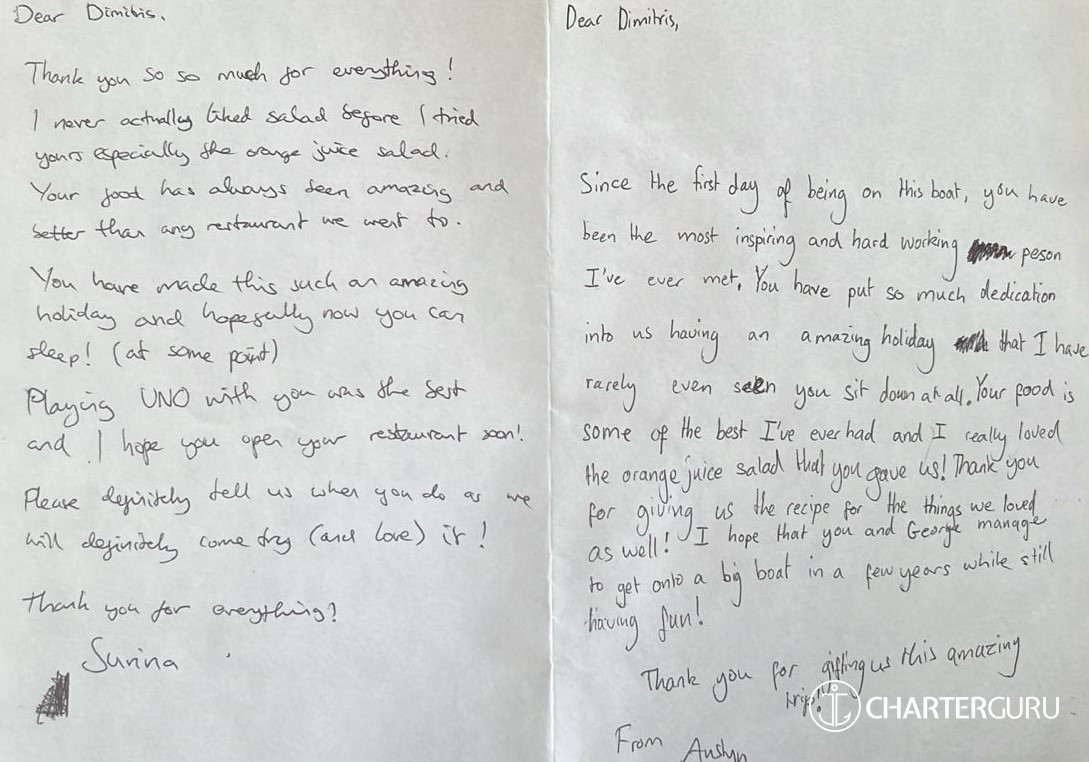 Dear Dimitris.
Thank you so so much for everything!
I never actually liked salad before I tried
yours especially the orange juice salad.
Your food has always been amazing and
better than any restaurant we went to.
You have made this such an amazing
holiday and hopefully now you can
sleep! (at some point)
Playing UNO with you was the best
and I hope you open your restaurant soon!
Please definitely tell us when you do as we
will definitely come try (and love) it!
Thank you for everything!
Surina
Dear Dimitris,
Since the first day of being on this boat, you have
been the most inspiring and hard working peson
I've ever met. You have put so much dedication
into us having an amazing holiday that I have
rarely even seen you sit down at all. Your food is
some of the best I've ever had and I really loved
the orange juice salad that you gave us! Thank you
for giving us the recipe for the things we loved
as well! I hope that you and George manage
to get onto a big boat in a few years while still
having fun!
Thank you for gifting us this amazing
trip!
CHARTERGURU
From